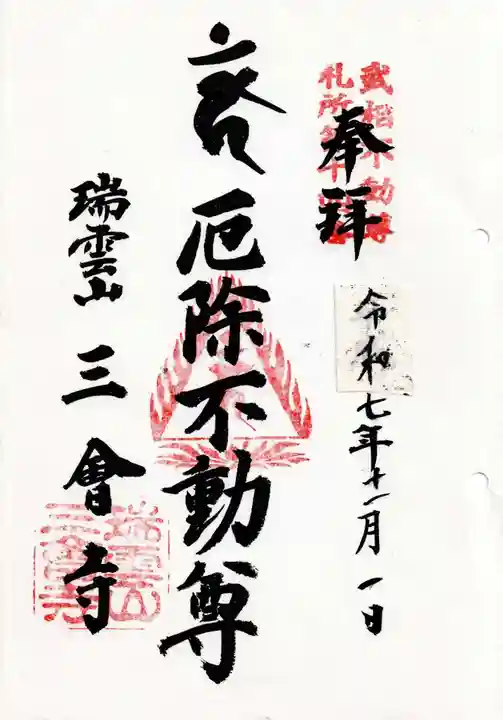 武相不動尊
札所第
奉拝
令和七年十一月一日
厄除不動尊
瑞雲山
三會寺
瑞雲山
三會寺